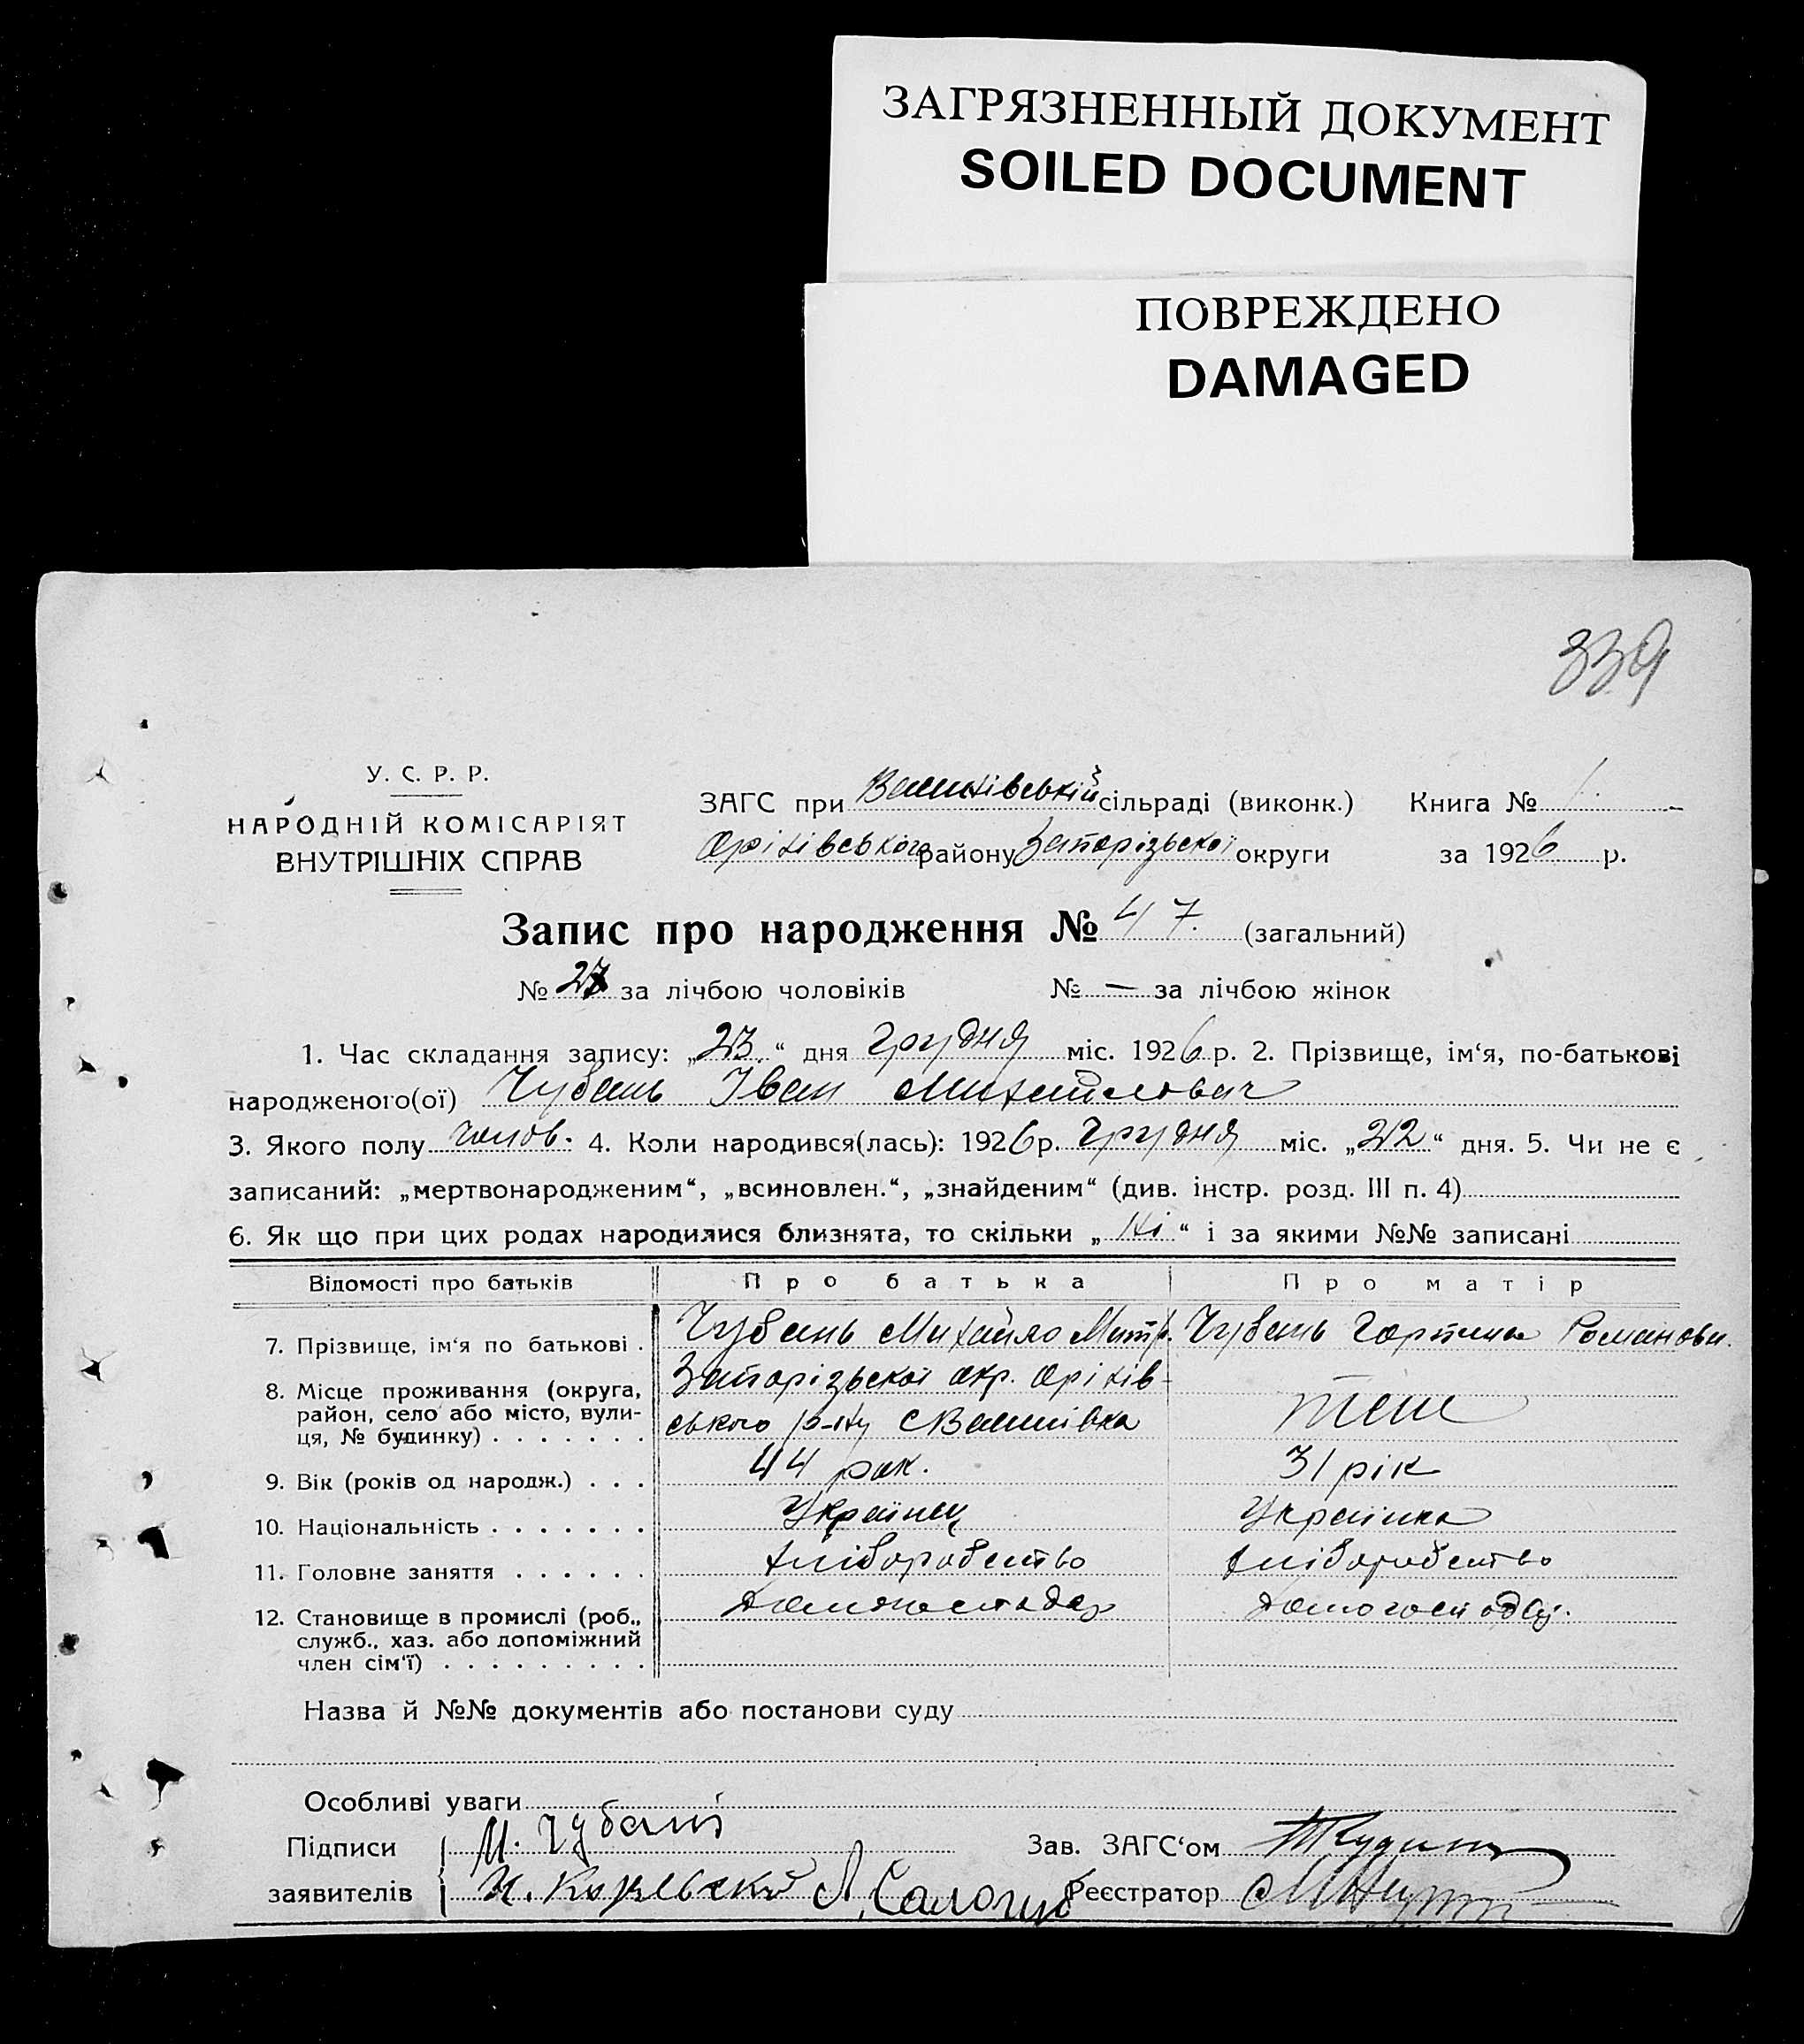 ЗАГРЯЗНЕННЫЙ ДОКУМЕНТ
SOILED DOCUMENT
ПОВРЕЖДЕНО
DAMAGED
339
У. С. Р. Р.
НАРОДНІЙ КОМІСАРІЯТ
ВНУТРІШНІХ СПРАВ
ЗАГС при сільраді (виконк.) Книга № 1.
Оріхівського району Запорізької округи за 1926 р.
Запис про народження № 47. (загальний)
№ 27 за лічбою чоловіків № — за лічбою жінок
1. Час складання запису: „23.“ дня Грудня міс. 1926 р. 2. Прізвище, ім‘я, по-батькові
народженого(ої) Чубань Іван Михайлович
3. Якого полу чолов. 4. Коли народився(лась): 1926 р. Грудня міс. „22“ дня. 5. Чи не є
записаний: „мертвонародженим“, „всиновлен.“, „знайденим“ (див. інстр. розд. III п. 4)
6. Як що при цих родах народилися близнята, то скільки „Ні“ і за якими №№ записані
Відомості про батьків Про батька Про матір
7. Прізвище, ім‘я по батькові . Чубань Михайло Митр. Чубань Горпина Романовн.
8. Місце проживання (округа, район, село або місто, вулиця, № будинку) . . . . . . . Запорізької окр. Оріхів-
ського р-ну теж
9. Вік (років од народж.) . . . 44 рок. 31 рік
10. Національність . . . . . . . Українец Українка
11. Головне заняття . . . . . . Хліборобство Хліборобство
12. Становище в промислі (роб., Домогосподар Домогосподар.
служб., хаз. або допоміжний
член сім‘ї) . . . . . . . . .
Назва й №№ документів або постанови суду
Особливі уваги
Підписи М. Чубань Зав. ЗАГС‘ом
заявителів А. Салогуб Реєстратор